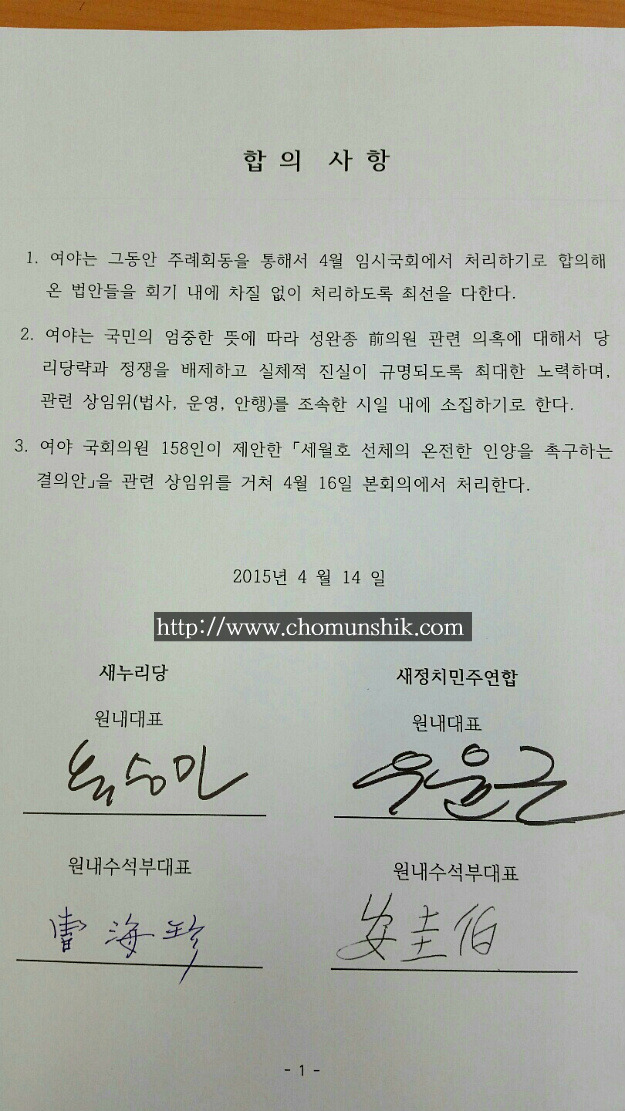 합 의 사 항
1. 여야는 그동안 주례회동을 통해서 4월 임시국회에서 처리하기로 합의해
온 법안들을 회기 내에 차질 없이 처리하도록 최선을 다한다.
2. 여야는 국민의 엄중한 뜻에 따라 성완종 前의원 관련 의혹에 대해서 당
리당략과 정쟁을 배제하고 실체적 진실이 규명되도록 최대한 노력하며,
관련 상임위(법사, 운영, 안행)를 조속한 시일 내에 소집하기로 한다.
3. 여야 국회의원 158인이 제안한 「세월호 선체의 온전한 인양을 촉구하는
결의안」을 관련 상임위를 거쳐 4월 16일 본회의에서 처리한다.
2015년 4 월 14 일
http://www.chomunshik.com
새누리당 새정치민주연합
원내대표 원내대표
유승민 우윤근
원내수석부대표 원내수석부대표
海珍 安圭伯
- 1 -